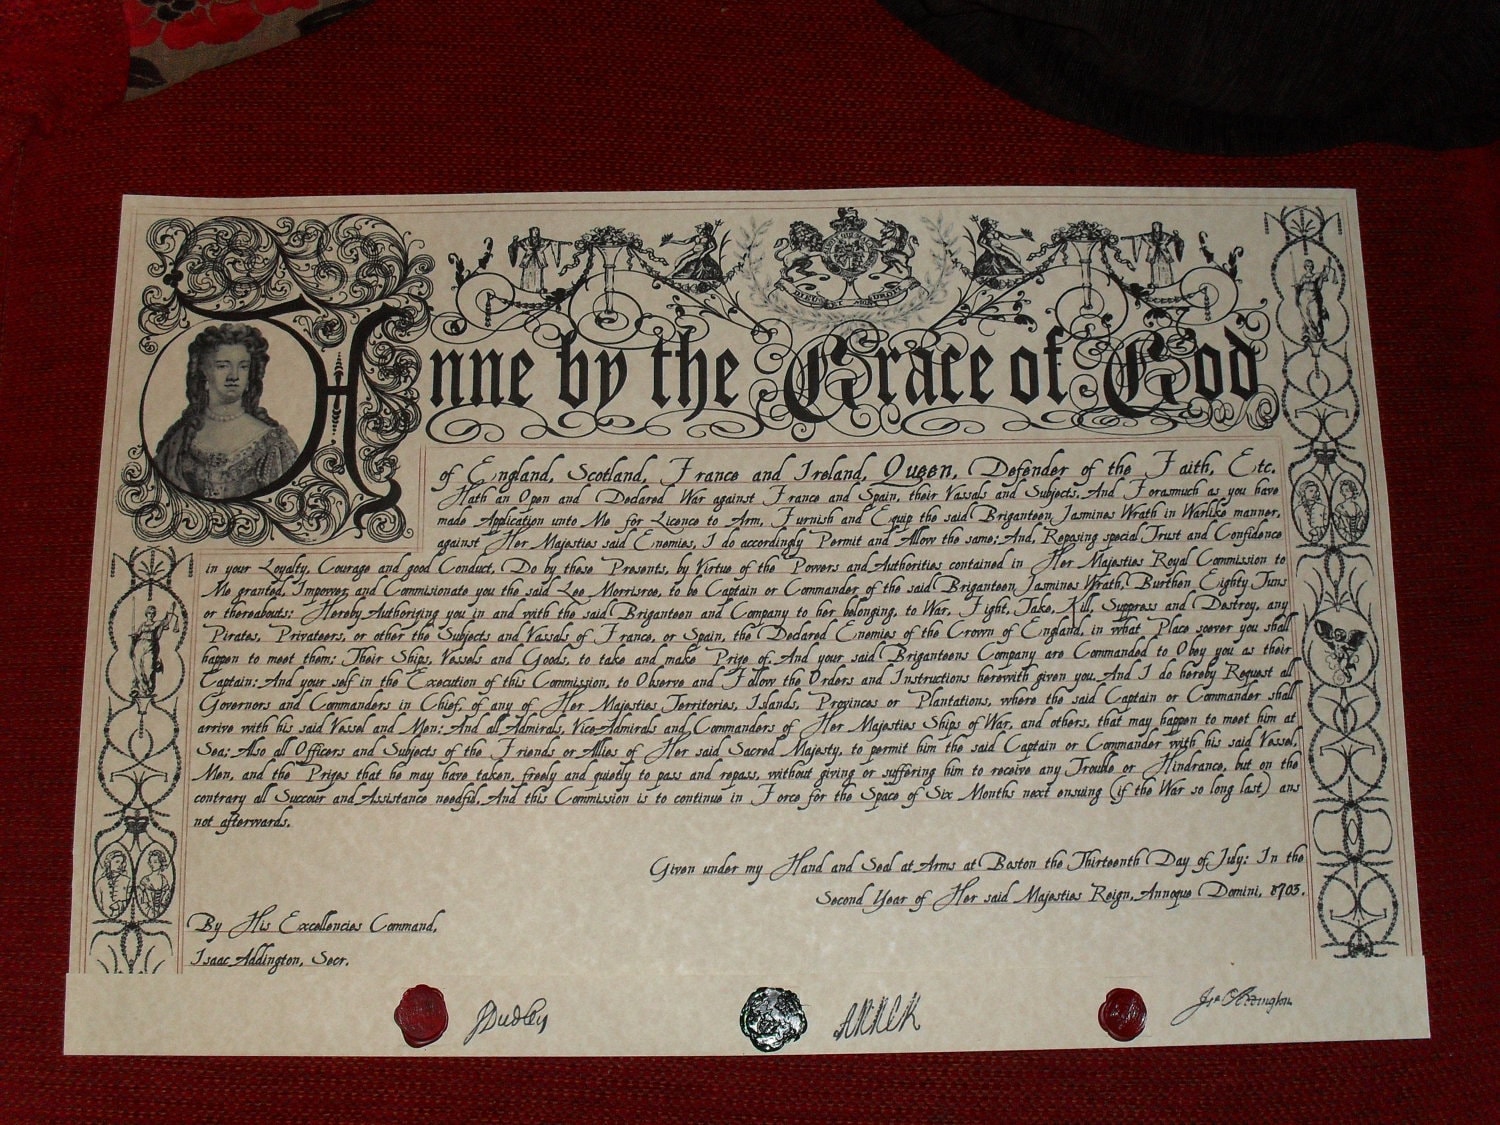 Anne by the Grace of God
of England, Scotland, France and Ireland, Queen, Defender of the Faith, Etc.
Hath an Open and Declared War against France and Spain, their Vassals and Subjects, And Forasmuch as you have
made Application unto Me for Licence to Arm, Furnish and Equip the said Briganteen Jasmines Wrath in Warlike manner,
against Her Majesties said Enemies, I do accordingly Permit and Allow the same; And, Reposing special Trust and Confidence
in your Loyalty, Courage and good Conduct, Do by these Presents, by Virtue of the Powers and Authorities contained in Her Majesties Royal Commission to
Me granted, Impower, and Commisionate you the said Lee Morrisroe, to be Captain or Commander of the said Briganteen Jasmines Wrath, Burthen Eighty Tuns
or thereabouts: Hereby Authorizing you in and with the said Briganteen and Company to her belonging, to War, Fight, Take, Kill, Suppress and Destroy, any
Pirates, Privateers, or other the Subjects and Vassals of France, or Spain, the Declared Enemies of the Crown of England, in what Place soever you shall
happen to meet them; Their Ships, Vessels and Goods, to take and make Prize of. And your said Briganteens Company are Commanded to Obey you as their
Captain: And your self in the Execution of this Commission, to Observe and Follow the Orders and Instructions herewith given you. And I do hereby Request all
Governors and Commanders in Chief, of any of Her Majesties Territories, Islands, Provinces or Plantations, where the said Captain or Commander shall
arrive with his said Vessel and Men: And all Admirals, Vice-Admirals and Commanders of Her Majesties Ships of War, and others, that may happen to meet him at
Sea; Also all Officers and Subjects of the Friends or Allies of Her said Sacred Majesty, to permit him the said Captain or Commander with his said Vessel,
Men, and the Prizes that he may have taken, freely and quietly to pass and repass, without giving or suffering him to receive any Trouble or Hindrance, but on the
contrary all Succour and Assistance needful. And this Commission is to continue in Force for the Space of Six Months next ensuing (if the War so long last) ans
not afterwards.
Given under my Hand and Seal at Arms at Boston the Thirteenth Day of July: In the
Second Year of Her said Majesties Reign, Annoque Domini, 1703.
By His Excellencies Command,
Isaac Addington, Secr.
JDudley